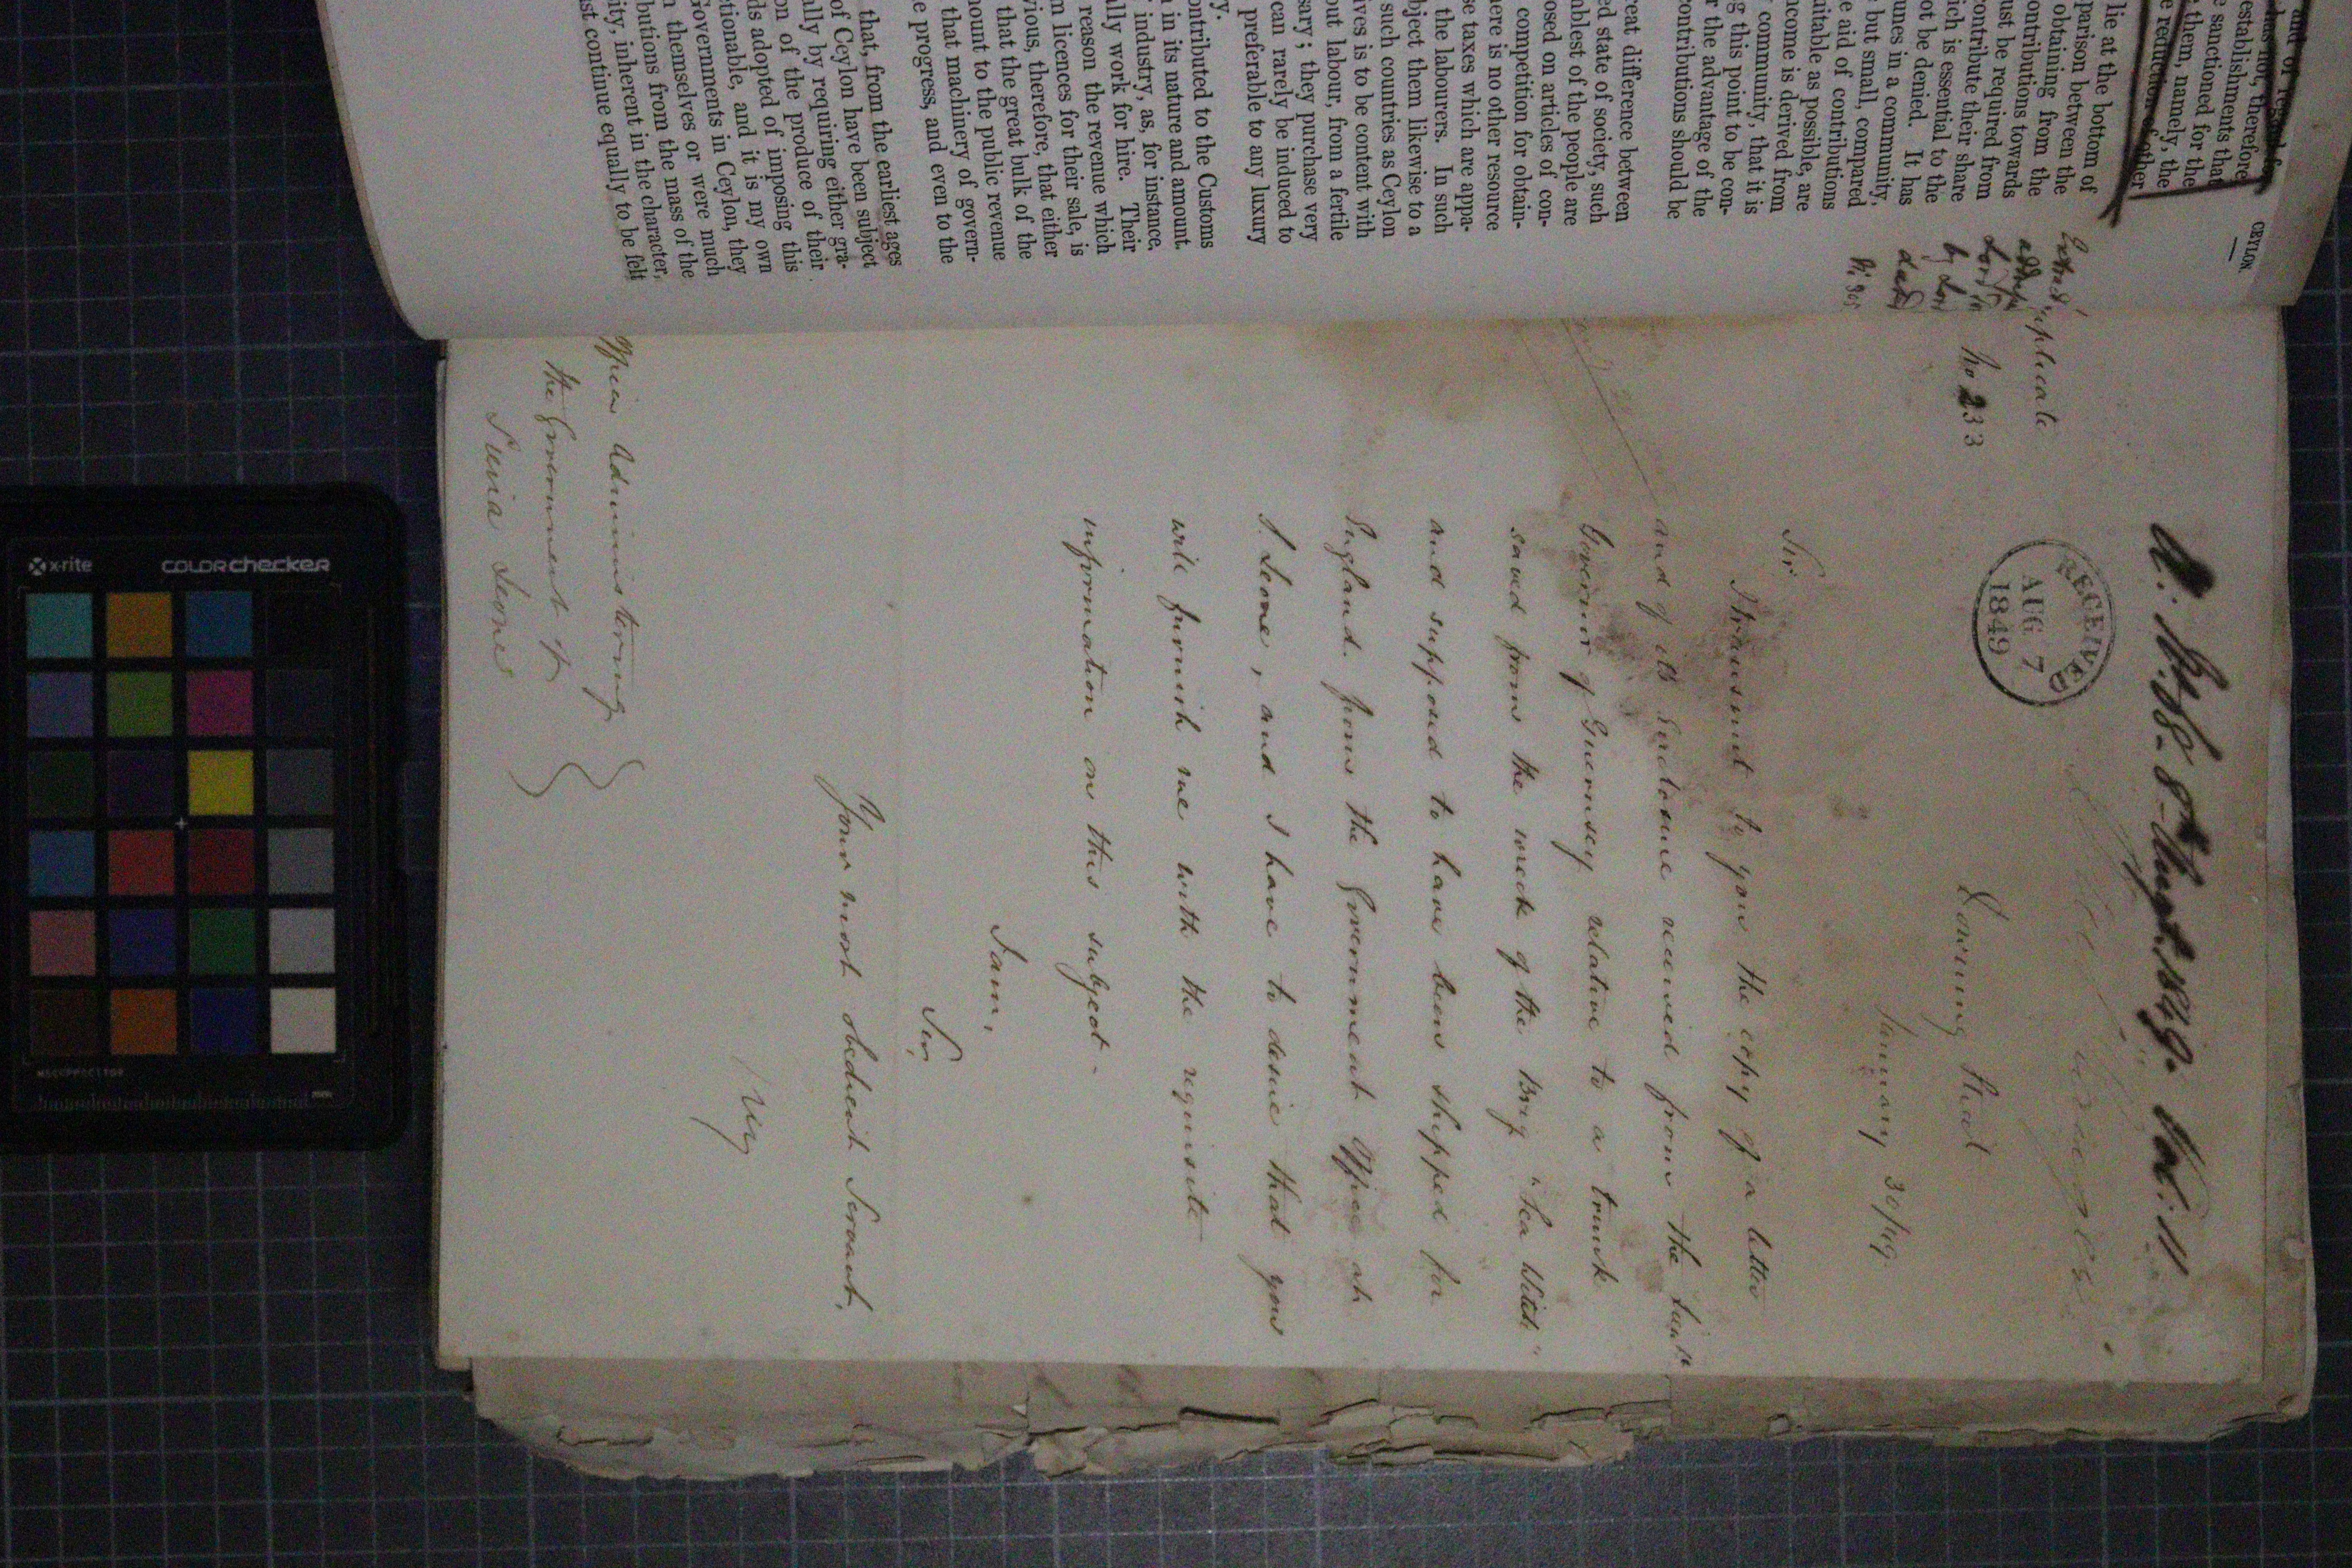 and of regard for
has not, therefore
establishments that
e sanctioned for the
them, namely, the
e reduction of other
CEYLON.
lie at the bottom of
parison between the
obtaining from the
ontributions towards
ust be required from
contribute their share
ich is essential to the
ot be denied. It has
unes in a community,
but small, compared
e aid of contributions
uitable as possible, are
ncome is derived from
community, that it is
g this point to be con-
r the advantage of the
contributions should be
reat difference between
ed state of society, such
mblest of the people are
osed on articles of con-
competition for obtain-
here is no other resource
se taxes which are appa-
the labourers. In such
bject them likewise to a
such countries as Ceylon
ives is to be content with
out labour, from a fertile
sary; they purchase very
can rarely be induced to
preferable to any luxury
y.
ontributed to the Customs
in its nature and amount.
industry, as, for instance,
ally work for hire. Their
reason the revenue which
m licences for their sale, is
vious, therefore, that either
that the great bulk of the
mount to the public revenue
that machinery of govern-
e progress, and even to the
that, from the earliest ages
of Ceylon have been subject
ally by requiring either gra-
on of the produce of their
ds adopted of imposing this
tionable, and it is my own
Governments in Ceylon, they
themselves or were much
butions from the mass of the
ity, inherent in the character,
ust continue equally to be felt
8th August 1849. Vol: 11
uplicate
No 233
RECEIVED
AUG 7
1849
Downing Street
January 30/49.
Sir
I transmit to you the copy of a letter
and of its Enclosure received from the Lieut
Governor of Guernsey relative to a trunk
saved from the wreck of the Brig "Sea Witch"
and supposed to have been shipped for
England from the Government Office at
S. Leone, and I have to desire that you
will furnish me with the requisite
information on this subject.
I am,
Sir,
Your most obedient Servant,
Officer Administering
the Government of
Sierra Leone
x-rite
colorchecker